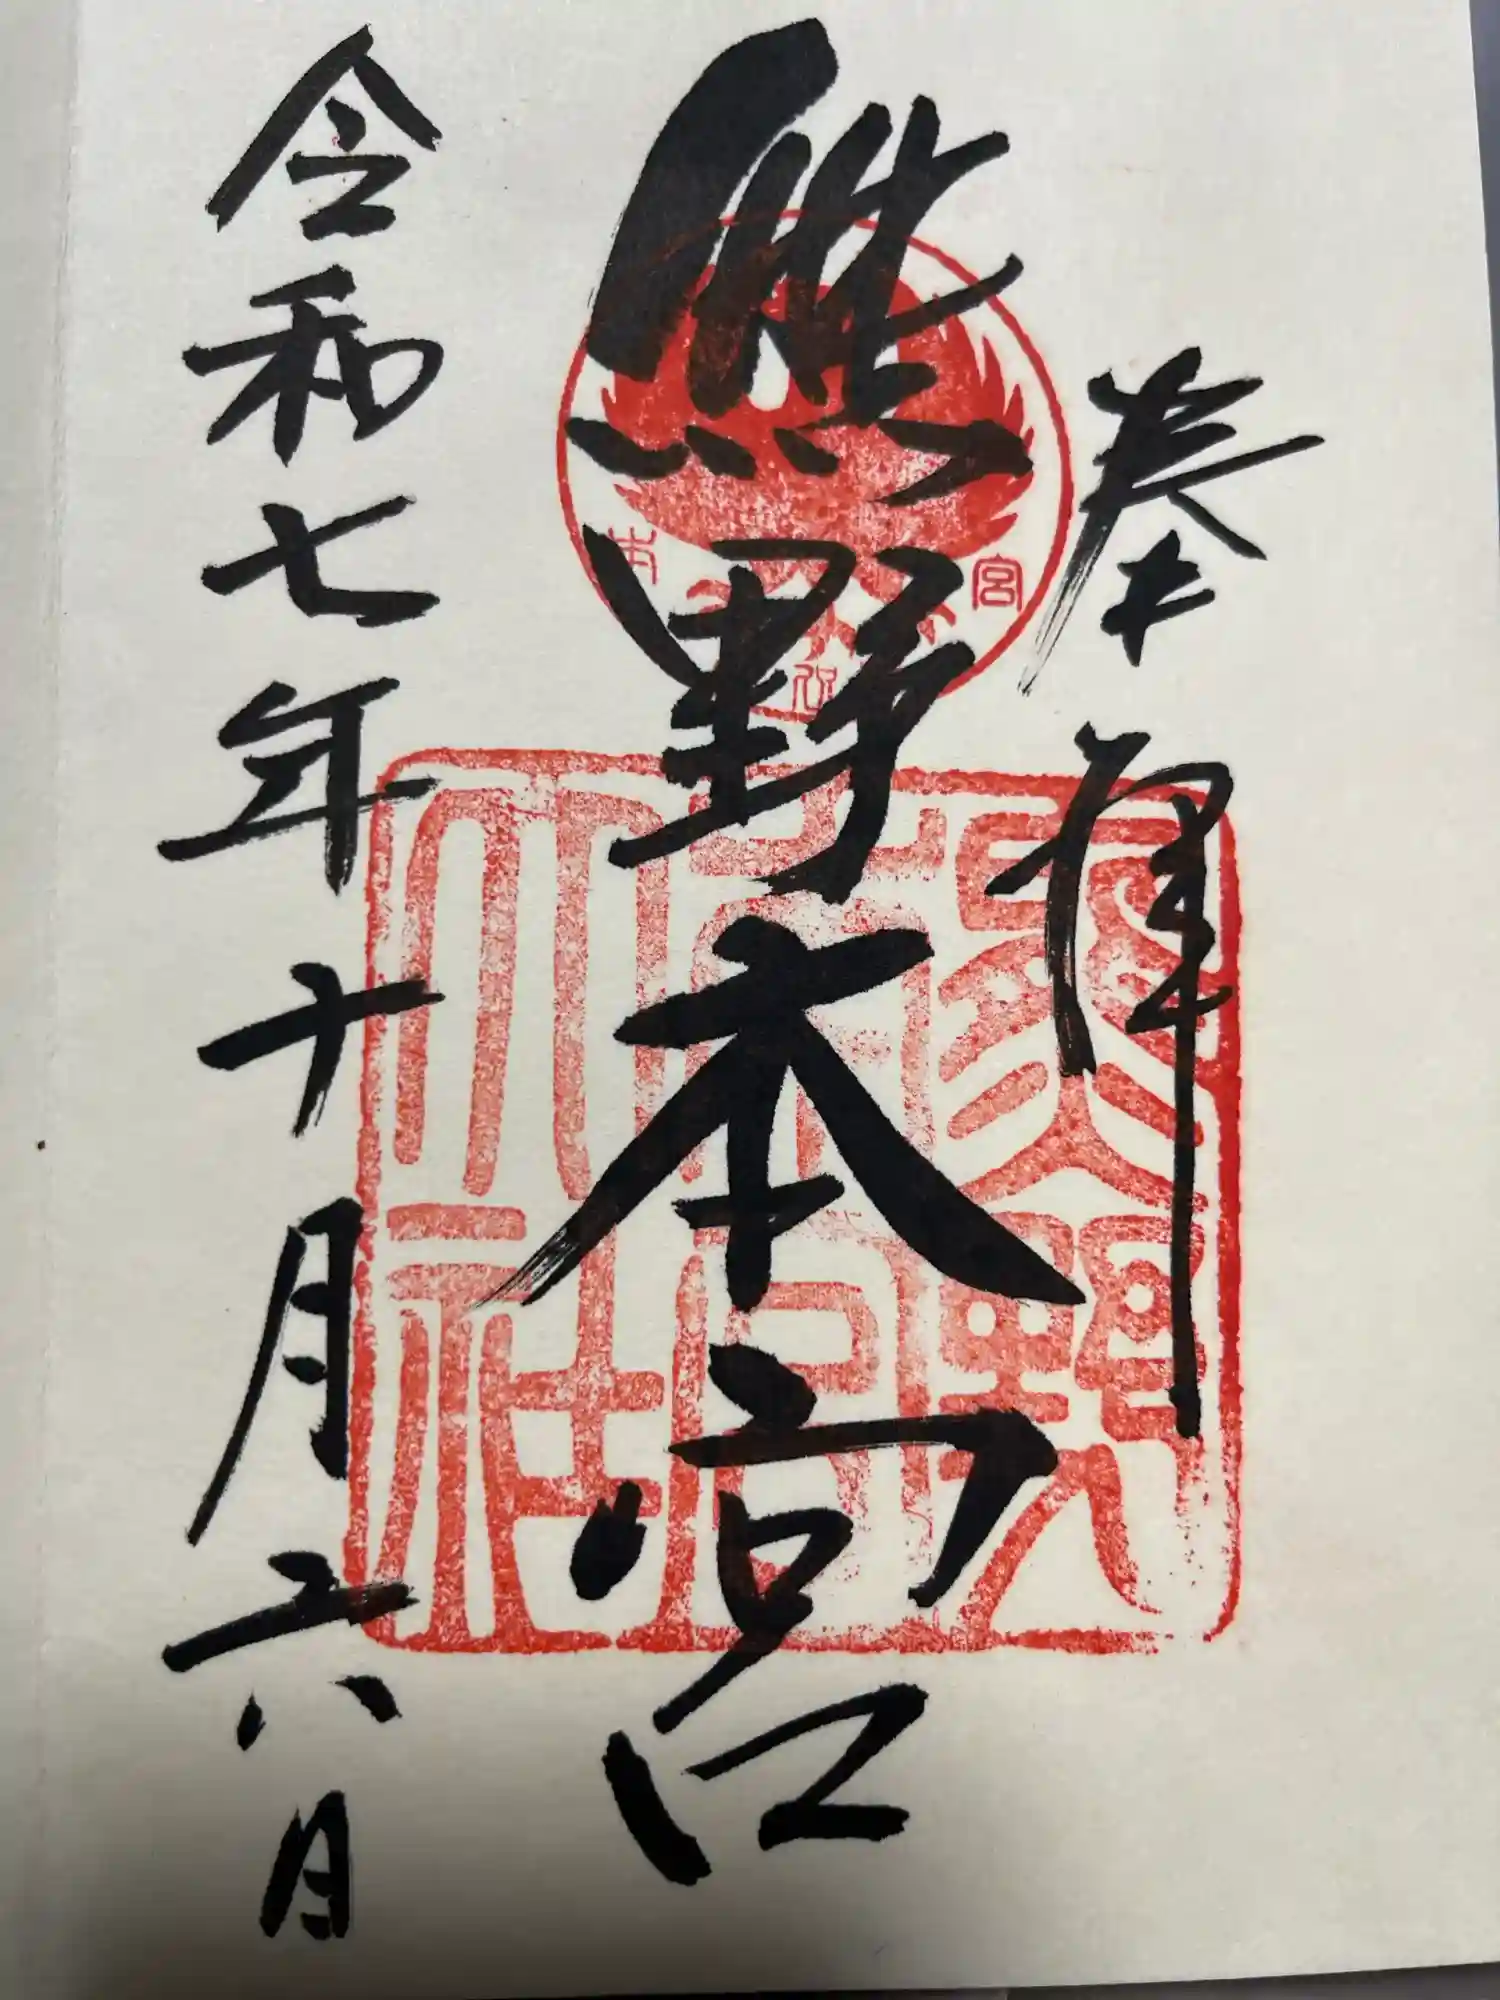 奉拝
熊野本宮
令和七年十月六日
熊野
本宮
大社